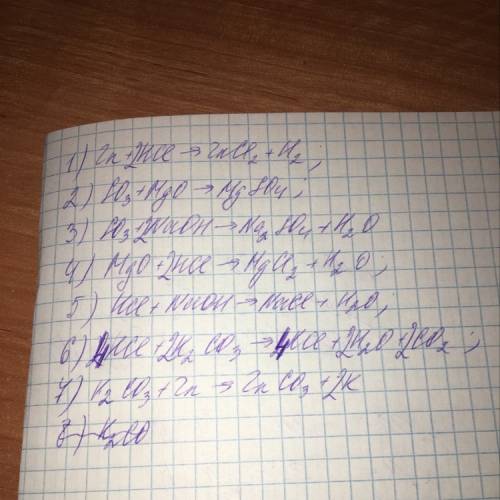 1) Zn+2HCl → ZnCl₂ + H₂;
2) SO₃+MgO → MgSO₄;
3) SO₃+2NaOH → Na₂SO₄+H₂O
4) MgO+2HCl → MgCl₂ + H₂O;
5) HCl + NaOH → NaCl + H₂O;
6) 4HCl + 2K₂CO₃ → 4KCl + 2H₂O + 2CO₂;
7) K₂CO₃ + Zn → ZnCO₃ + 2K
8) K₂CO